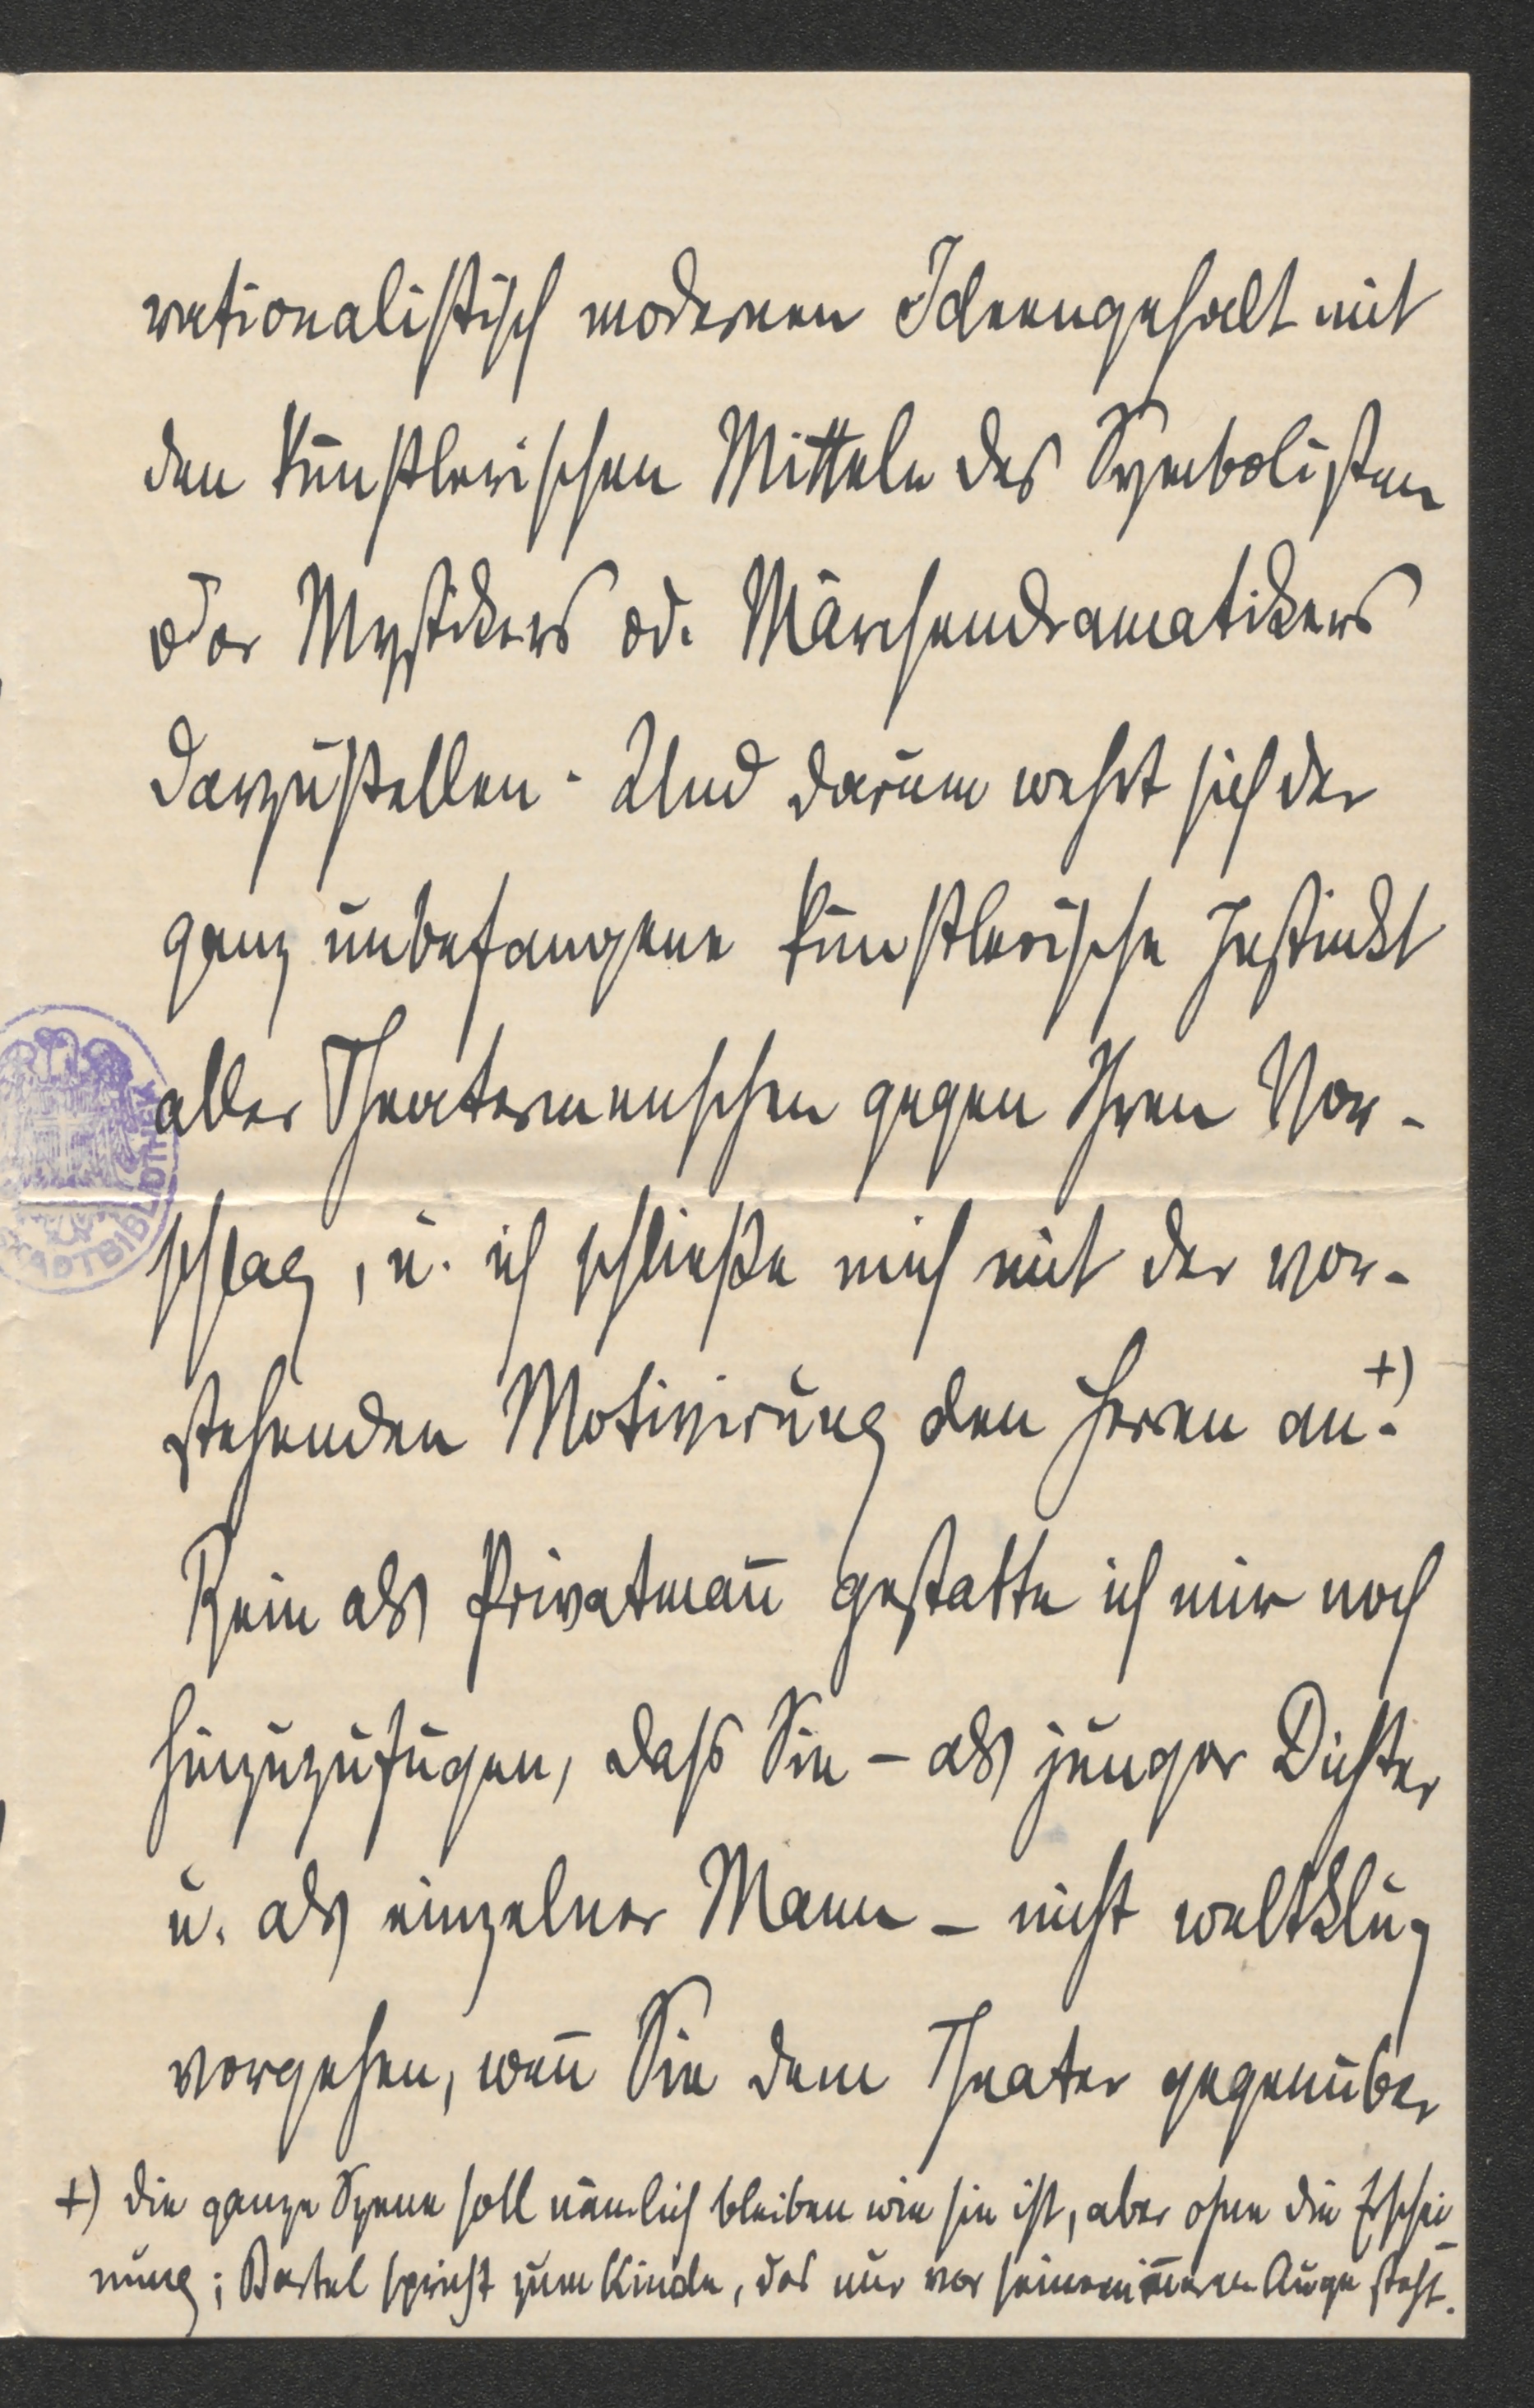 rationalistisch modernen Ideengehalt mit
den künstlerischen Mitteln des Symbolisten
oder Mystikers od. Märchendramatikers
darzustellen. Und darum wehrt sich der
ganz unbefangene künstlerische Instinkt
aller Theatermenschen gegen Ihren Vor-
schlag, u. ich schließe mich mit der vor-
stehenden Motivirung den Herren an. +)
Rein als Privatmañ gestatte ich mir noch
hinzuzufügen, dass Sie – als junger Dichter
u. als einzelner Mann – nicht weltklug
vorgehen, weñ Sie dem Theater gegenüber
+) die ganze Szene soll nämlich bleiben wie sie ist, aber ohne die Erschei-
nung; Bartel spricht zum Kinde, das nur vor seinem iñeren Auge steht.
STADTBIBLIOTHEK